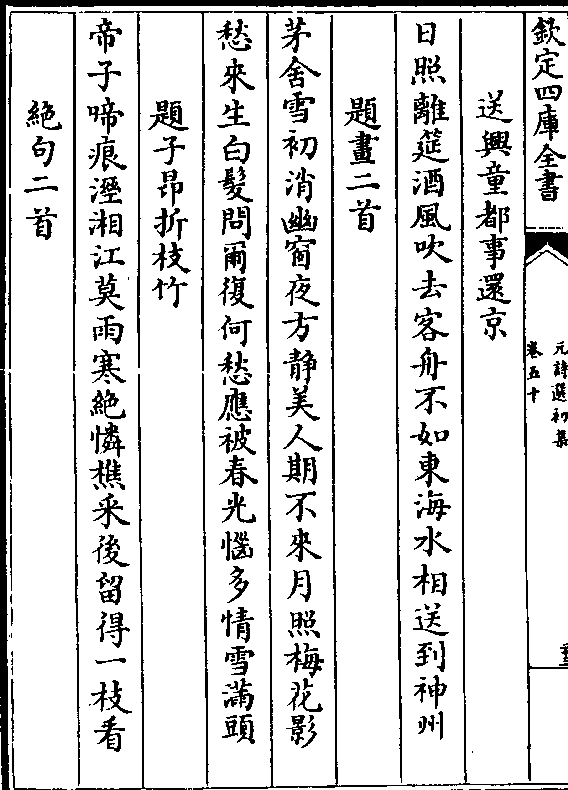 欽定四庫全書
元詩選初集
卷五十
送興童都事還京
日照離筵酒風吹去客舟不如東海水相送到神州
題畫二首
茅舍雪初消幽窗夜方靜美人期不來月照梅花影
愁來生白髮問爾復何愁應被春光惱多情雪滿頭
題子昂折枝竹
帝子啼痕溼湘江莫雨寒絕憐樵采後留得一枝看
絕句二首